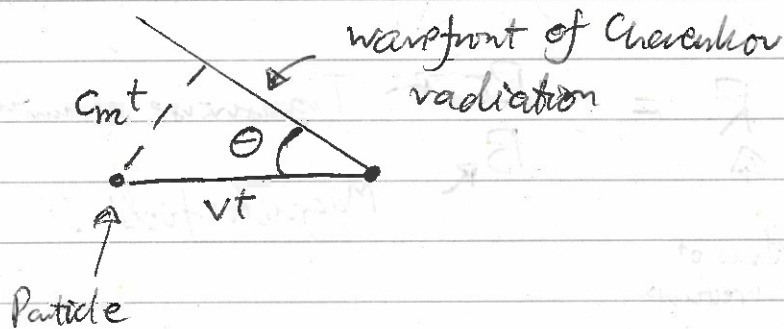 wavefront of Cherenkov
radiation
cₘt
θ
vt
Particle